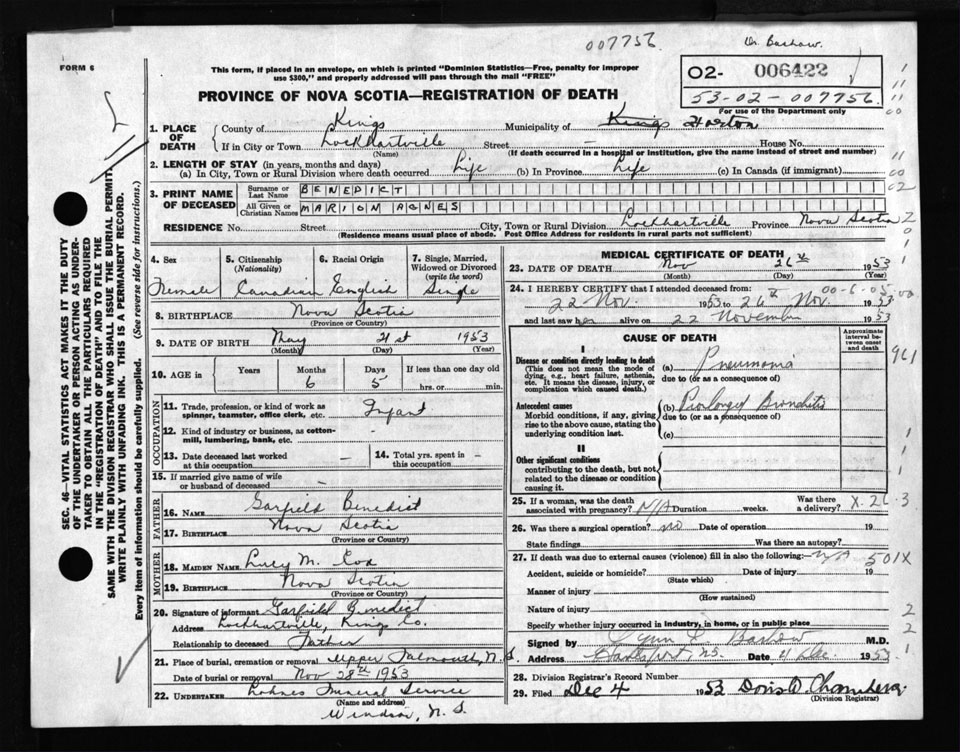 007756
Dr. Bashow.
FORM 6
This form, if placed in an envelope, on which is printed "Dominion Statistics—Free, penalty for improper
use $300," and properly addressed will pass through the mail "FREE"
02- 006422
53-02-007756.
For use of the Department only
PROVINCE OF NOVA SCOTIA—REGISTRATION OF DEATH
1. PLACE OF DEATH
County of Kings Municipality of Kings Horton
If in City or Town Lockhartville Street — House No.
(Name) (If death occurred in a hospital or institution, give the name instead of street and number)
2. LENGTH OF STAY (in years, months and days)
(a) In City, Town or Rural Division where death occurred Life (b) In Province Life (c) In Canada (if immigrant)
3. PRINT NAME OF DECEASED
Surname or Last Name BENEDICT
All Given or Christian Names MARION AGNES
RESIDENCE No. Street City, Town or Rural Division Lockhartville Province Nova Scotia
(Residence means usual place of abode. Post Office Address for residents in rural parts not sufficient)
4. Sex 5. Citizenship (Nationality) 6. Racial Origin 7. Single, Married, Widowed or Divorced (write the word)
Female Canadian English Single
8. BIRTHPLACE Nova Scotia
(Province or Country)
9. DATE OF BIRTH May 21st 1953
(Month) (Day) (Year)
10. AGE in Years Months Days If less than one day old
6 5 hrs. or min.
OCCUPATION
11. Trade, profession, or kind of work as spinner, teamster, office clerk, etc. Infant
12. Kind of industry or business, as cotton-mill, lumbering, bank, etc.
13. Date deceased last worked at this occupation — 14. Total yrs. spent in this occupation —
15. If married give name of wife or husband of deceased —
FATHER
16. NAME Garfield Benedict
17. BIRTHPLACE Nova Scotia
(Province or Country)
MOTHER
18. MAIDEN NAME Lucy M. Cox
19. BIRTHPLACE Nova Scotia
(Province or Country)
20. Signature of informant Garfield Benedict
Address Lockhartville, Kings Co.
Relationship to deceased Father
21. Place of burial, cremation or removal Upper Falmouth, N.S.
Date of burial or removal Nov 28th 1953
22. UNDERTAKER Lohnes Funeral Service
(Name and address)
Windsor, N.S.
MEDICAL CERTIFICATE OF DEATH
23. DATE OF DEATH Nov 26th 1953
(Month) (Day) (Year)
00-6-05
24. I HEREBY CERTIFY that I attended deceased from:
22 Nov. 1953 to 26th Nov. 1953
and last saw her alive on 22 November 1953
CAUSE OF DEATH
Approximate interval between onset and death
I
Disease or condition directly leading to death
(This does not mean the mode of dying, e.g., heart failure, asthenia, etc. It means the disease, injury, or complication which caused death.)
(a) Pneumonia
due to (or as a consequence of)
Antecedent causes
Morbid conditions, if any, giving rise to the above cause, stating the underlying condition last.
(b) Prolonged Bronchitis
due to (or as a consequence of)
(c)
II
Other significant conditions
contributing to the death, but not related to the disease or condition causing it.
25. If a woman, was the death associated with pregnancy? N/A Duration weeks. Was there a delivery? X.26.3
26. Was there a surgical operation? no Date of operation 19
State findings Was there an autopsy?
27. If death was due to external causes (violence) fill in also the following: N/A 501X
Accident, suicide or homicide? Date of injury 19
(State which)
Manner of injury
(How sustained)
Nature of injury
Specify whether injury occurred in industry, in home, or in public place
Signed by Lynn L. Bashow M.D.
Address Hantsport, NS. Date 4 Dec. 1953
28. Division Registrar's Record Number
29. Filed Dec 4 1953 Doris D. Chambers.
(Division Registrar)
961
SEC. 46—VITAL STATISTICS ACT MAKES IT THE DUTY
OF THE UNDERTAKER OR PERSON ACTING AS UNDER-
TAKER TO OBTAIN ALL THE PARTICULARS REQUIRED
IN THE "REGISTRATION OF DEATH" AND TO FILE THE
SAME WITH THE DIVISION REGISTRAR WHO SHALL ISSUE THE BURIAL PERMIT.
WRITE PLAINLY WITH UNFADING INK. THIS IS A PERMANENT RECORD.
Every item of information should be carefully supplied. (See reverse side for instructions.)